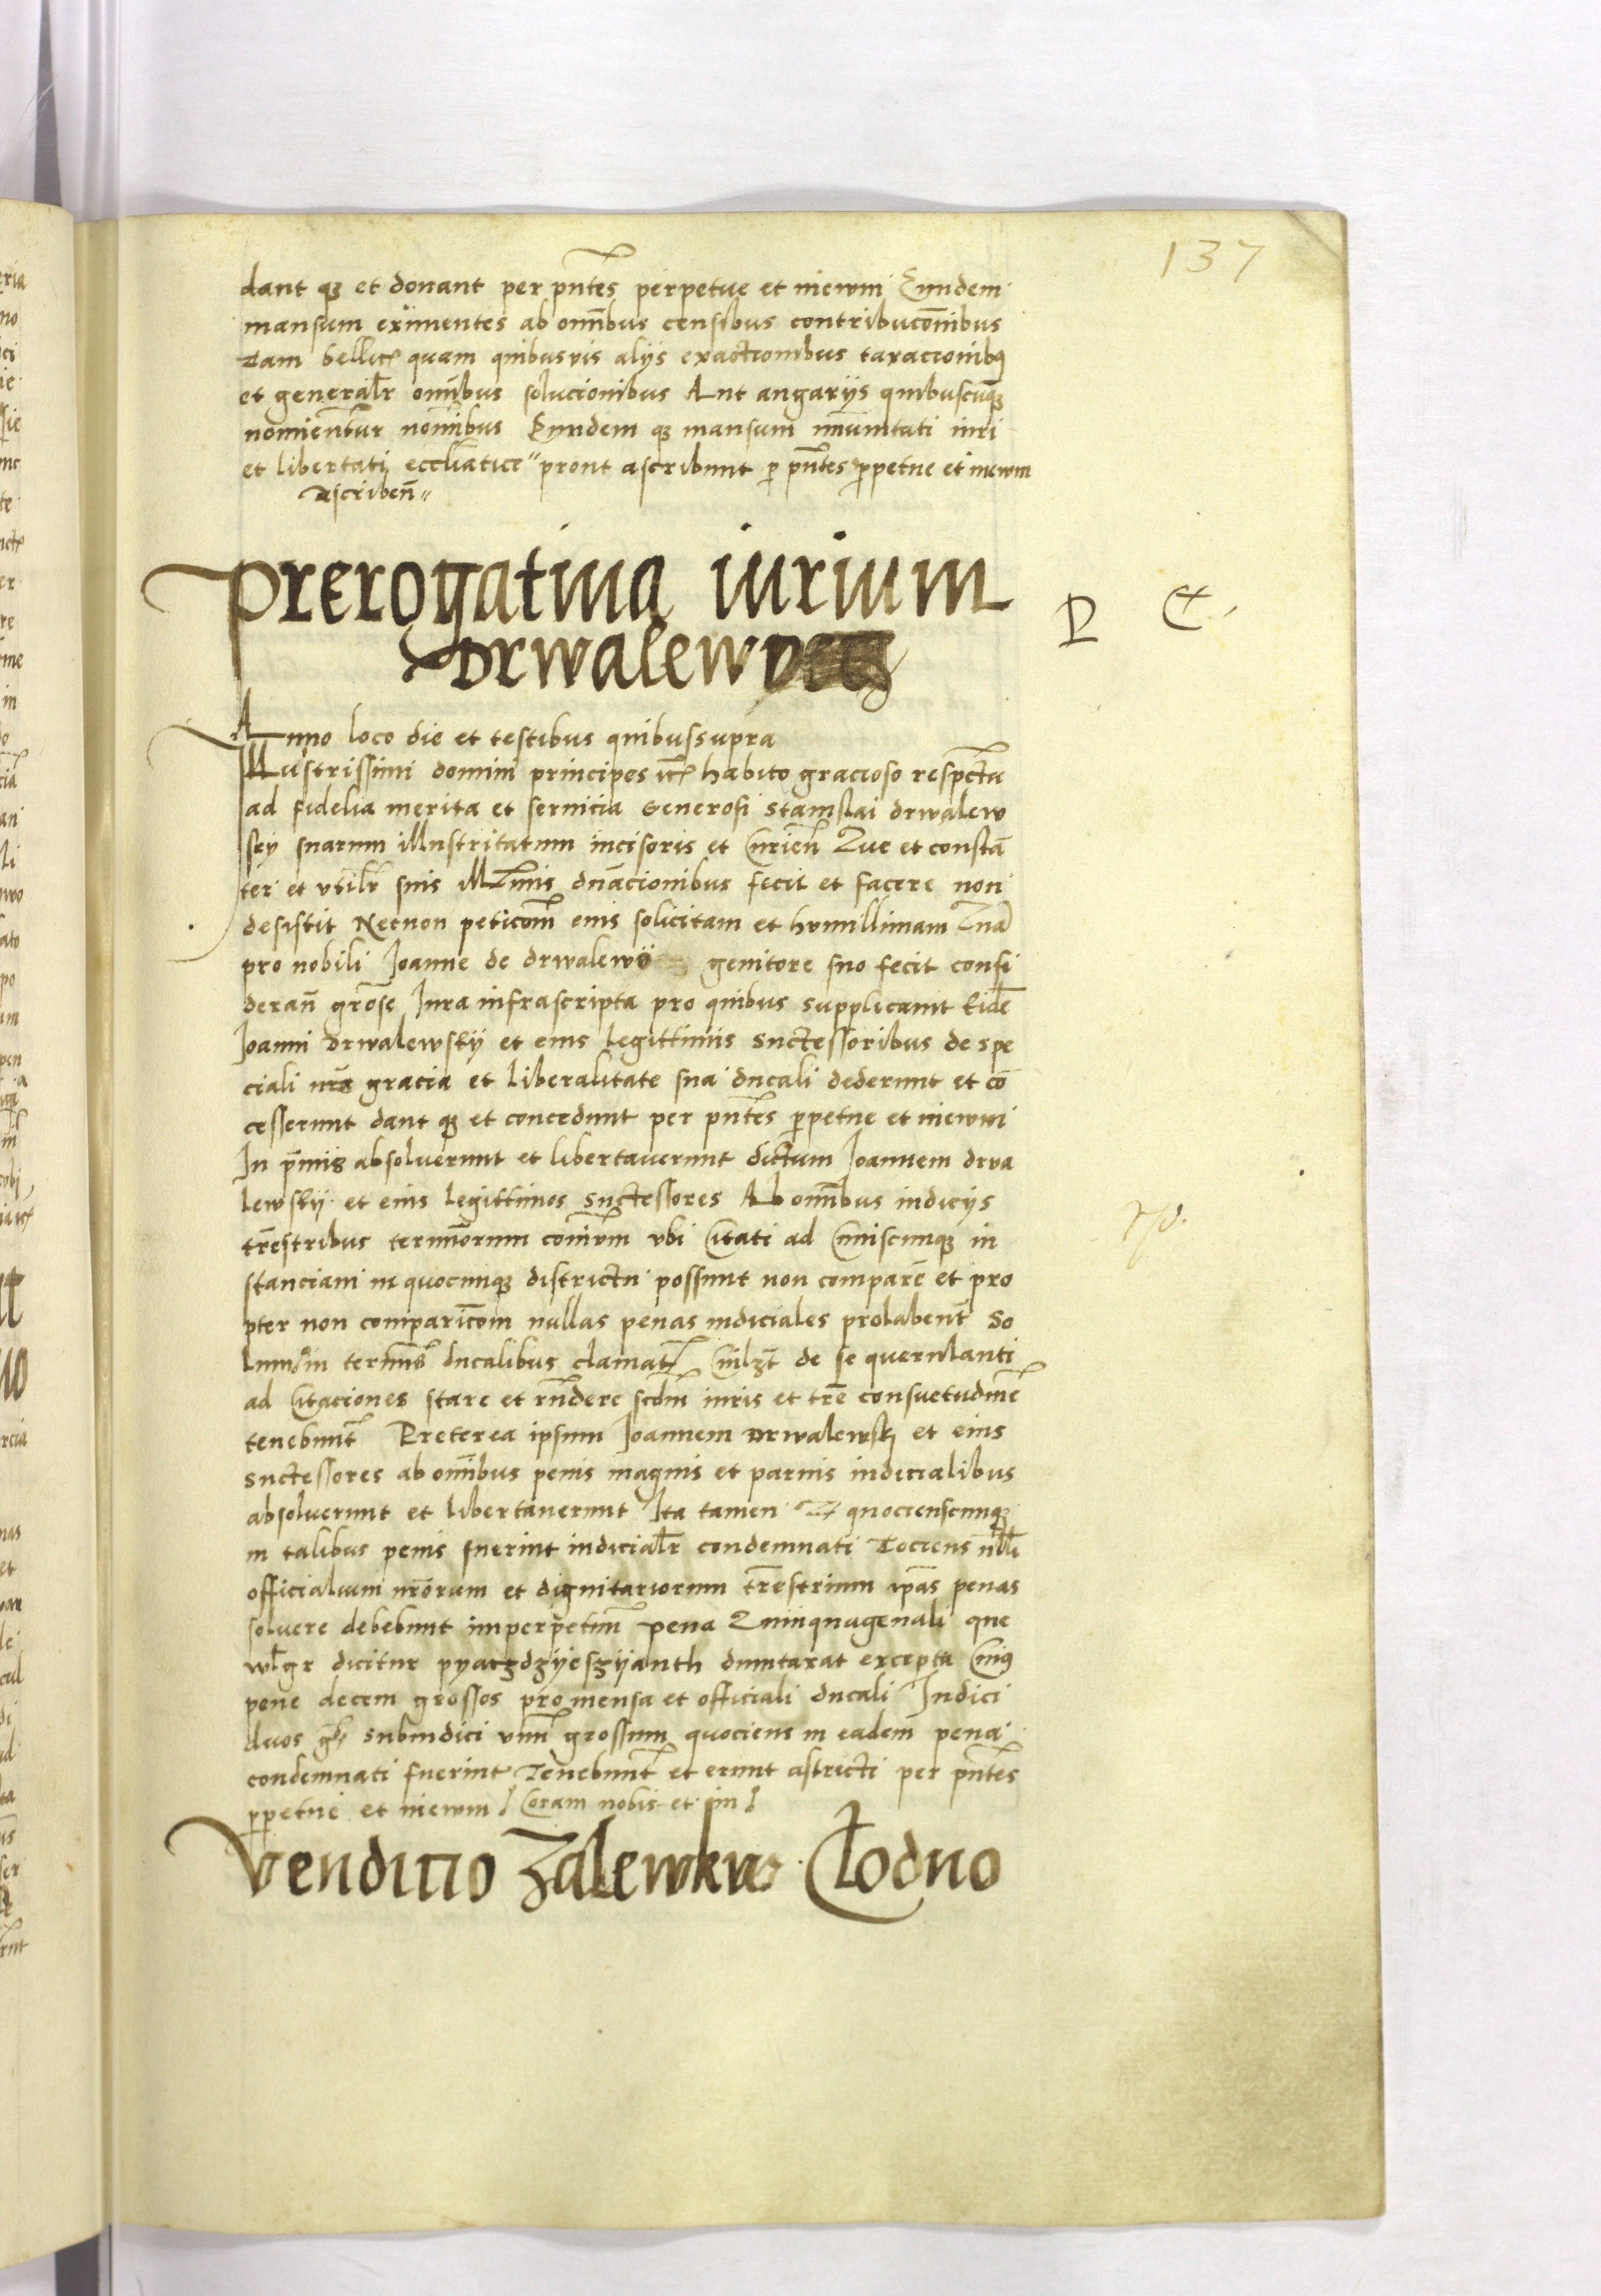 137
dant q3 et donant per pntes perpetue et inewm Eundem
mansum eximentes ab omibus censibus contribucoibus
Tam bellic quam quibusvis alijs exactionibus taxacionibq
et generalr omibus solucionibus Aut angarijs quibuscuq3
nomientur nomibus Eundem q3 mansum imunitati iuri
et libertati ecclesiatice prout ascribunt p pntes ppetue et inewm
Ascriben
Prerogatiua iurium
Drwalew
P C
Anno loco die et testibus quibussupra
Illustrissimi domini principes etc habito gracioso respectu
ad fidelia merita et seruicia Generosi Stanislai drwalew
sky suarum illustritatum incisoris et Curien Que et consta
ter et vtilr suis Illmis dnacionibus fecit et facere non
desistit Necnon peticom eius solicitam et humillimam Qua
pro nobili Joanne de drwalewo genitore suo fecit consi
deran grose Jura infrascripta pro quibus supplicauit Eide
Joanni drwalewskij et eius legittimis successoribus de spe
ciali gracia et liberalitate sua ducali dederunt et co
cesserunt dant q3 et concedunt per pntes ppetue et inewm
In pmis absoluerunt et libertauerunt dictum Joannem drwa
lewskij et eius legittimos successores Ab omibus iudicijs
trestribus terminorum comum vbi Citati ad Cuiuscunq3 in
stanciam in quocunq3 districtu possunt non compare et pro
pter non comparicom nullas penas iudiciales prolabent So
lum in termis ducalibus clamat Cuilzt de se querulanti
ad Citaciones stare et rndere scdm iuris et tre consuetudine
tenebunt Preterea ipsum Joannem Drwalewskj et eius
successores ab omibus penis magnis et paruis iudicialibus
absoluerunt et libertauerunt Ita tamen quocienscunq3
in talibus penis fuerint iudicialr condemnati Tociens nulli
officialium nrorum et dignitariorum trestrium ipas penas
soluere debebunt imperpetuum pena Quinquagenali que
wlgr dicitur pyaczdzyeszijanth dumtaxat excepta Cuiq
pene decem grossos pro mensa et officiali ducali Judici
duos gr Subiudici vnum grossum quociens in eadem pena
condemnati fuerint Tenebunt et erunt astricti per pntes
ppetue et inewm Coram nobis et
Vendicio Zalewkw Clodno